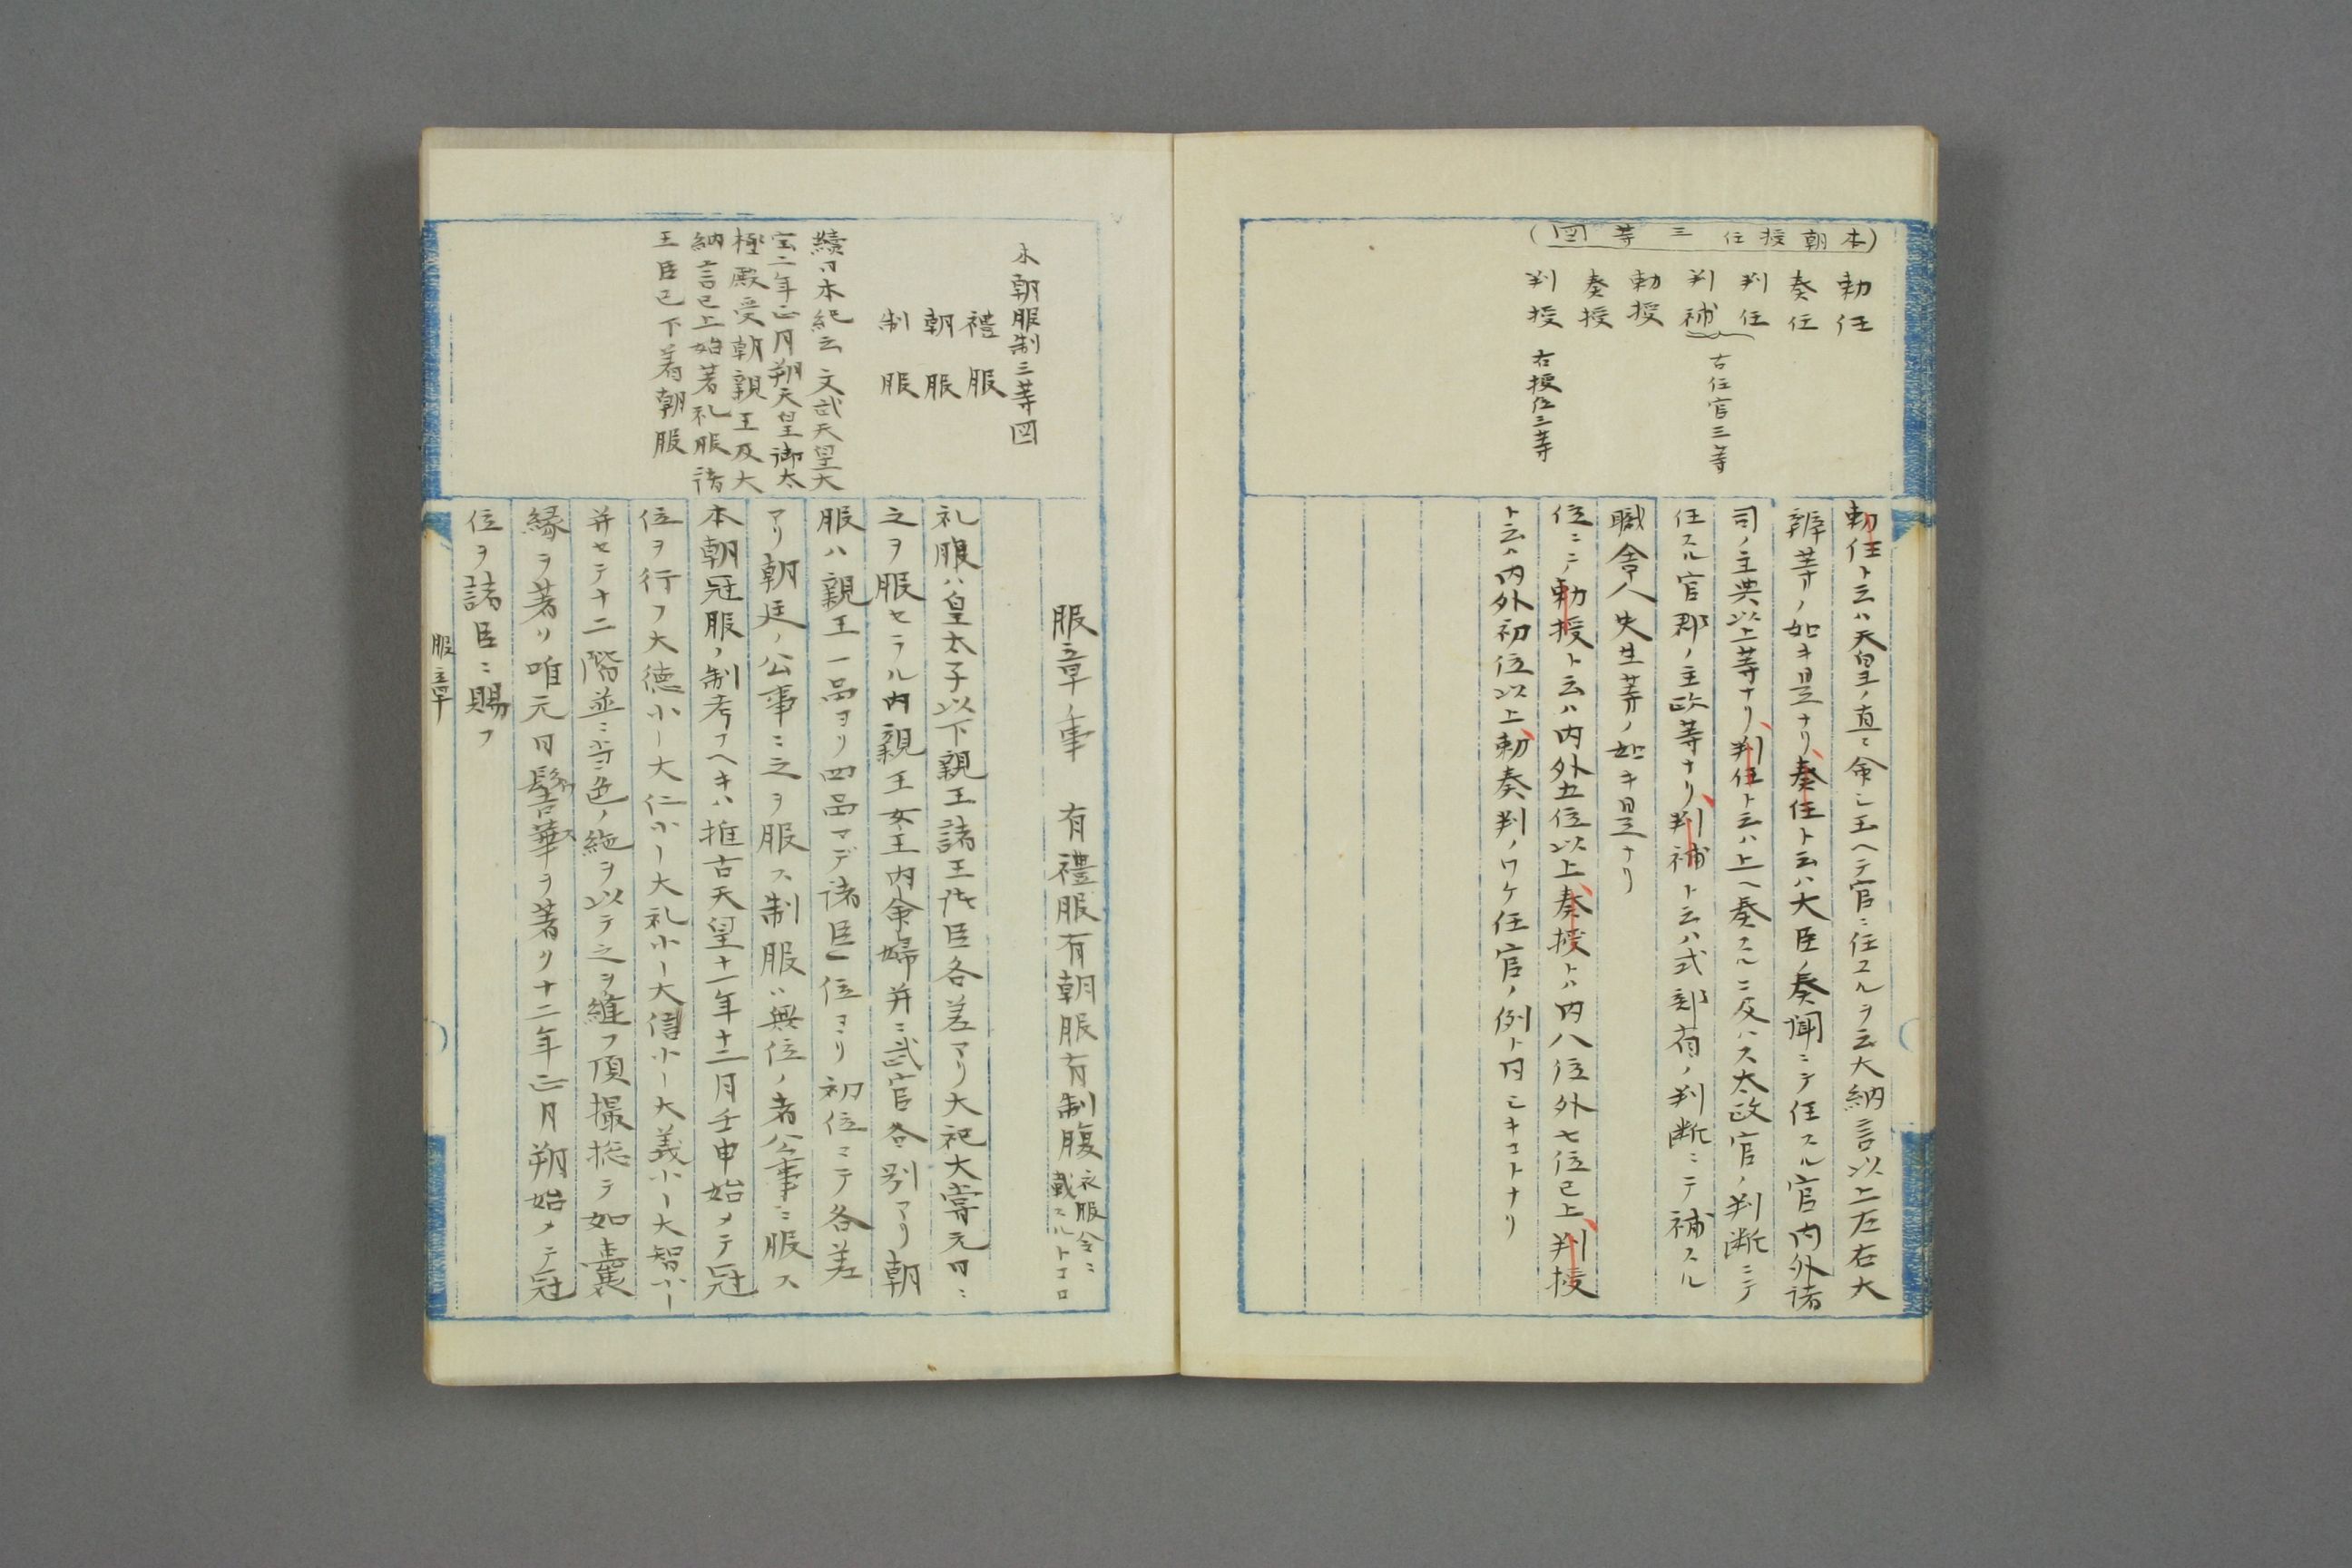 (本朝授任三等図)
勅任
奏任
判任
判補
右任官三等
勅授
奏授
判授
右授位三等
勅任ト云ハ天皇ノ直ニ命シ玉ヘテ官ニ任スルヲ云大納言以上左右大
辨等ノ如キ是ナリ奏任ト云ハ大臣ノ奏聞ニテ任スル官内外諸
司ノ主典以上等ナリ判任ト云ハ上ヘ奏スルニ及ハス太政官ノ判断ニテ
任スル官郡ノ主政等ナリ判補ト云ハ式部省ノ判断ニテ補スル
職舎人史生等ノ如キ是ナリ
位ニノ勅授ト云ハ内外五位以上奏授トハ内八位外七位已上判授
ト云ハ内外初位以上勅奏判ノワケ任官ノ例ト同シキコトナリ
本朝服制三等図
禮服
朝服
制服
續日本紀云文武天皇大
宝二年正月朔天皇御太
極殿受朝親王及大
納言已上始著礼服諸
王臣已下着朝服
服章ノ事 有禮服有朝服有制服 衣服令ニ
載スルトコロ
礼服ハ皇太子以下親王諸王諸臣各差アリ大祀大嘗元日ニ
之ヲ服セラル内親王女王内命婦并ニ武官各別アリ朝
服ハ親王一品ヨリ四品マデ諸臣一位ヨリ初位ニテ各差
アリ朝廷ノ公事ニ之ヲ服ス制服ハ無位ノ者公事ニ服ス
本朝冠服ノ制考フヘキハ推古天皇十一年十二月壬申始メテ冠
位ヲ行フ大徳小ー大仁小ー大礼小ー大信小ー大義小ー大智小ー
并セテ十二階並ニ当色ノ絁ヲ以テ之ヲ縫フ頂撮捴テ如嚢
縁ヲ著リ唯元日髻華ヲ著リ十二年正月朔始メテ冠
位ヲ諸臣ニ賜フ
服章